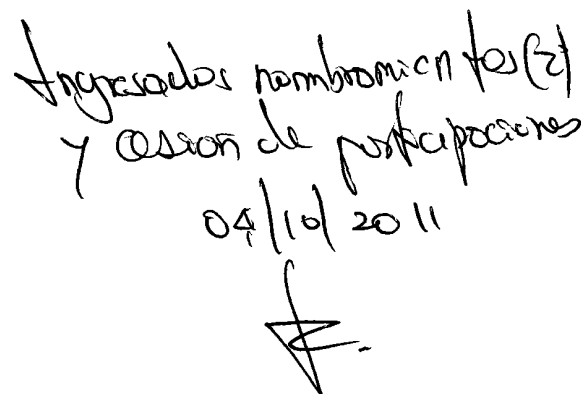 Ingresados nombramientos (2)
y cesion de participaciones
04/10/2011